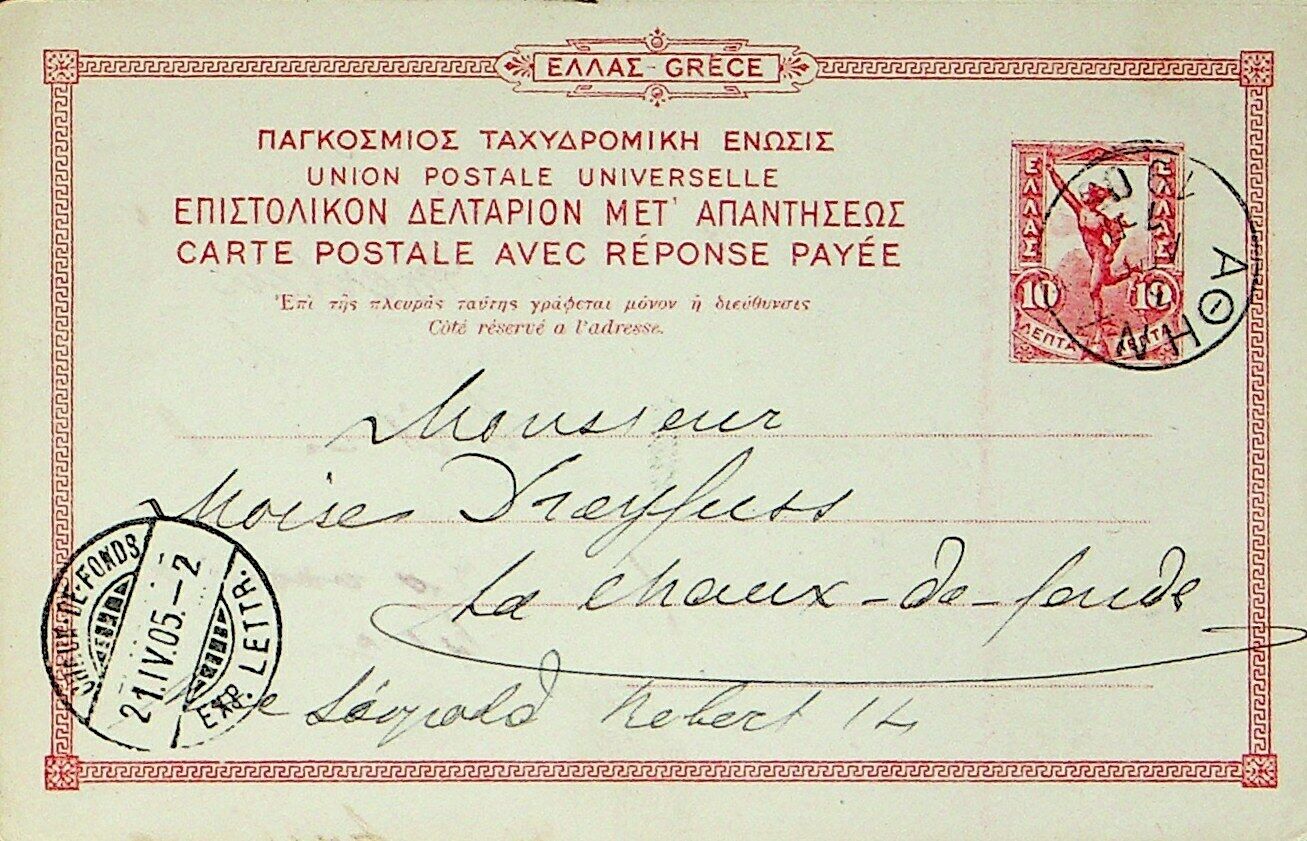 ΕΛΛΑΣ - GRÈCE
ΠΑΓΚΟΣΜΙΟΣ ΤΑΧΥΔΡΟΜΙΚΗ ΕΝΩΣΙΣ
UNION POSTALE UNIVERSELLE
ΕΠΙΣΤΟΛΙΚΟΝ ΔΕΛΤΑΡΙΟΝ ΜΕΤ' ΑΠΑΝΤΗΣΕΩΣ
CARTE POSTALE AVEC RÉPONSE PAYÉE
Ἐπὶ τῆς πλευρᾶς ταύτης γράφεται μόνον ἡ διεύθυνσις
Côté réservé a l'adresse.
ΕΛΛΑΣ ΕΛΛΑΣ
10 10
ΛΕΠΤΑ ΛΕΠΤΑ
ΑΘΗΝ
Monsieur
Moïse Dreyfuss
La Chaux-de-fonds
Rue Léopold Robert 14
CHAUX-DE-FONDS
21.IV.05.-2
EXP. LETTR.